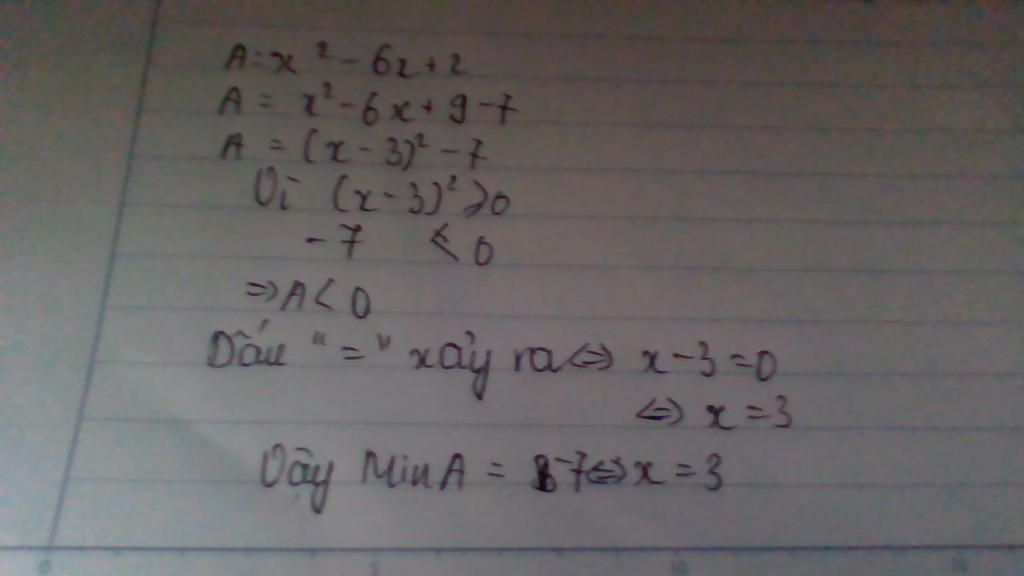 A = x² - 6x + 2
A = x² - 6x + 9 - 7
A = (x - 3)² - 7
Vì (x - 3)² ⩾ 0
- 7 < 0
⇒ A < 0
Dấu "=" xảy ra ⇔ x - 3 = 0
⇔ x = 3
Vậy Min A = -7 ⇔ x = 3
0 5 10 15